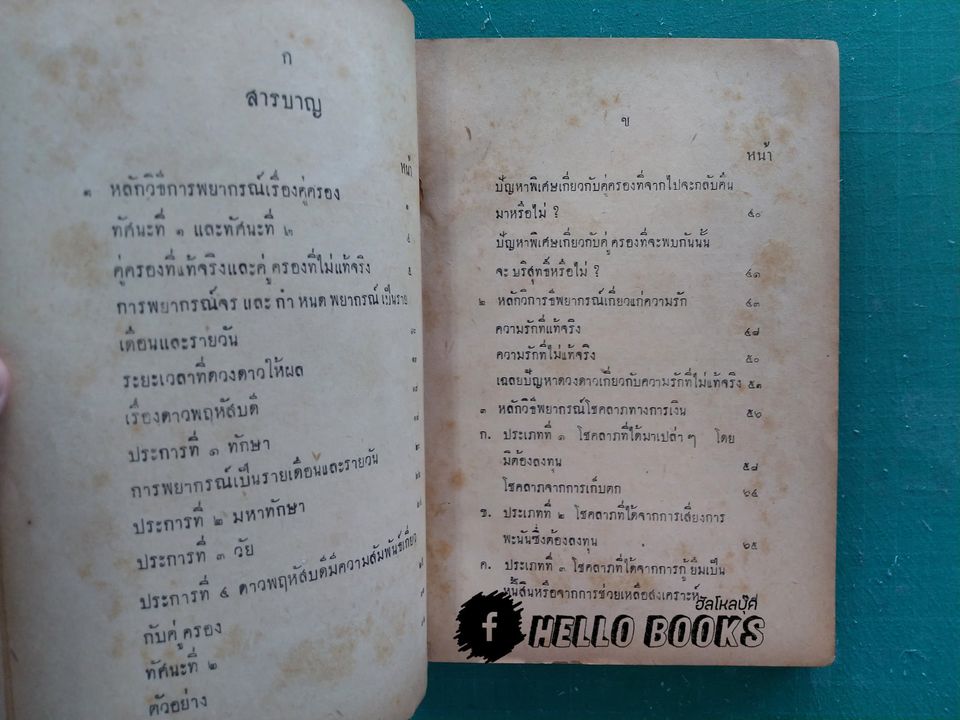 ก
สารบาญ
หน้า
๑ หลักวิธีการพยากรณ์เรื่องคู่ครอง
ทัศนะที่ ๑ และทัศนะที่ ๒
คู่ครองที่แท้จริงและคู่ครองที่ไม่แท้จริง
การพยากรณ์จร และ กำหนด พยากรณ์ เป็นราย
เดือนและรายวัน
ระยะเวลาที่ดวงดาวให้ผล
เรื่องดาวพฤหัสบดี
ประการที่ ๑ ทักษา
การพยากรณ์เป็นรายเดือนและรายวัน
ประการที่ ๒ มหาทักษา
ประการที่ ๓ วัย
ประการที่ ๔ ดาวพฤหัสบดีมีความสัมพันธ์เกี่ยว
กับคู่ครอง
ทัศนะที่ ๒
ตัวอย่าง
ข
หน้า
ปัญหาพิเศษเกี่ยวกับคู่ครองที่จากไปจะกลับคืน
มาหรือไม่ ? ๔๐
ปัญหาพิเศษเกี่ยวกับคู่ครองที่จะพบกันนั้น
จะ บริสุทธิ์หรือไม่ ? ๔๑
๒ หลักวิการธีพยากรณ์เกี่ยวแก่ความรัก ๔๓
ความรักที่แท้จริง ๔๘
ความรักที่ไม่แท้จริง ๕๐
เฉลยปัญหาดวงดาวเกี่ยวกับความรักที่ไม่แท้จริง ๕๑
๓ หลักวิธีพยากรณ์โชคลาภทางการเงิน ๕๖
ก. ประเภทที่ ๑ โชคลาภที่ได้มาเปล่า ๆ โดย
มิต้องลงทุน ๕๘
โชคลาภจากการเก็บตก ๖๔
ข. ประเภทที่ ๒ โชคลาภที่ได้จากการเสี่ยงการ
พะนันซึ่งต้องลงทุน ๖๕
ค. ประเภทที่ ๓ โชคลาภที่ได้จากการกู้ยืมเป็น
หนี้สินหรือจากการช่วยเหลือสงเคราะห์
ฮัลโหลบุ๊ค
f HELLO BOOKS